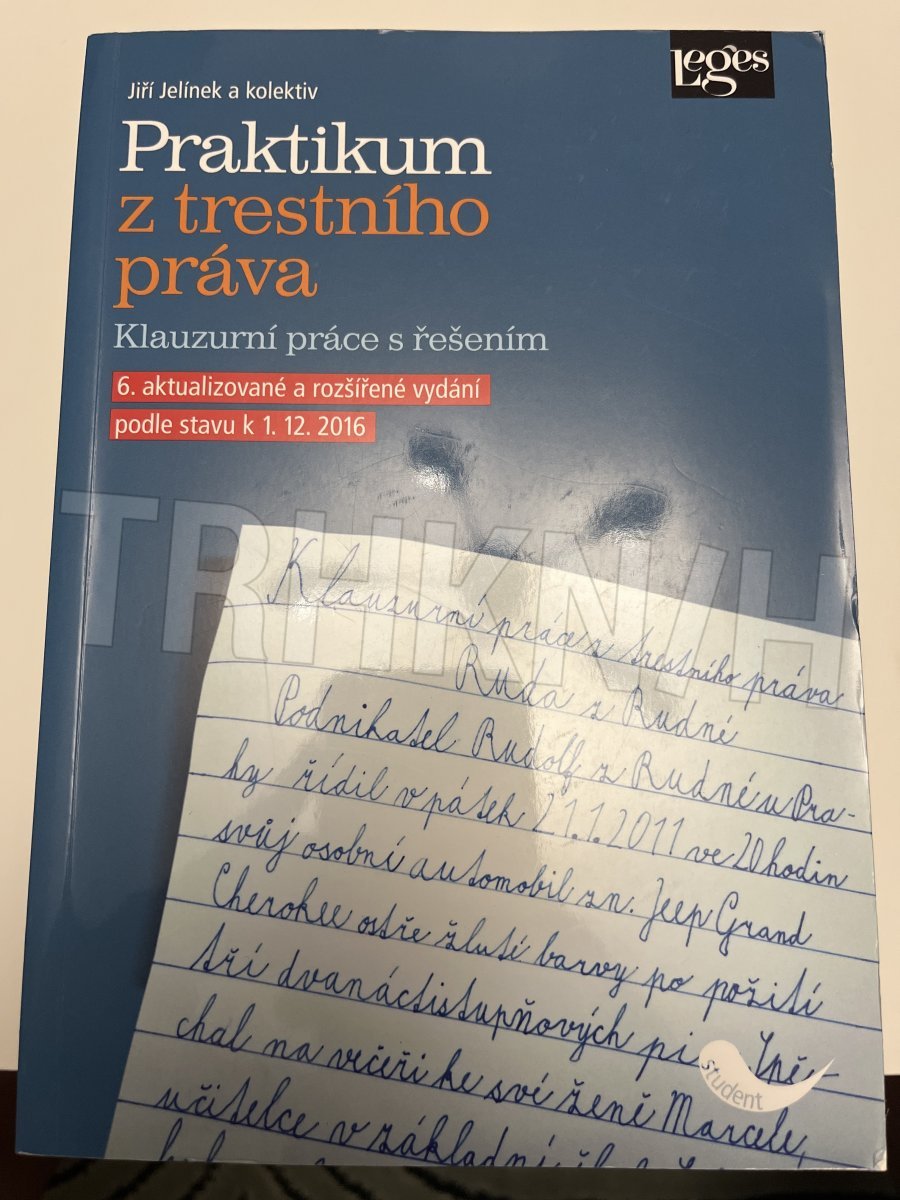 Leges
Jiří Jelínek a kolektiv
Praktikum
z trestního
práva
Klauzurní práce s řešením
6. aktualizované a rozšířené vydání
podle stavu k 1. 12. 2016
TRHKNIH
Klauzurní práce z trestního práva
Ruda z Rudné
Podnikatel Rudolf z Rudné u Pra-
hy řídil v pátek 21.1.2011 ve 20 hodin
svůj osobní automobil zn. Jeep Grand
Cherokee ostře žluté barvy po požití
tří dvanáctistupňových pi Spě-
chal na večeři ke své ženě Marcele,
učitelce v základní
student